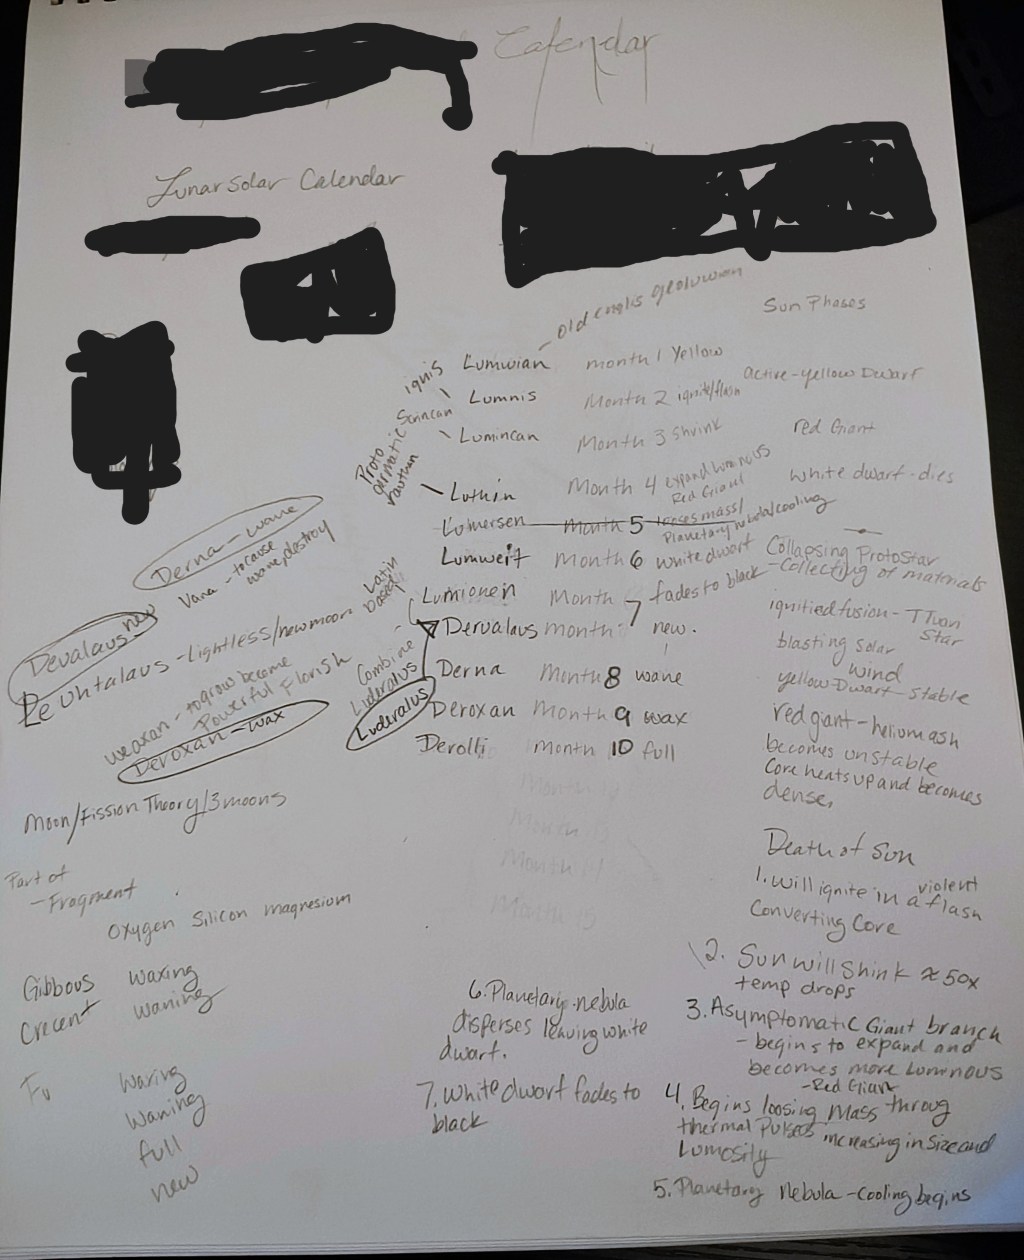 Calendar
Lunar solar Calendar
old englis geoluwian
Sun Phases
ignis
Lumwian month 1 Yellow
active-yellow Dwarf
Lumnis Month 2 ignite/flash
Scrincan
Lumincan Month 3 shrink
red Giant
Proto
Luthin Month 4 expand luminous
Red Giant
white dwarf-dies
Lumersen Month 5 looses mass/
Planetary nebula/cooling
Lumweit Month 6 white dwarf
Collapsing Protostar
-Collecting of materials
Lumionen Month 7 fades to black
ignitied fusion-
Star
Dervalaus month new.
blasting solar
wind
Derna Month 8 wane
yellow Dwarf stable
Deroxan Month 9 wax
red giant-
becomes unstable
Derolli month 10 full
Core heats up and becomes
dense,
Derna-wane
Vana-to cause
wane, destroy
Latin
based
Devalaus new
-Lightless/new moon
Combine
Luderalus
Luderalus
weaxan-to grow become
Powerful Florish
Deroxan-wax
Month
Month 13
Month 14
Month 15
Moon/Fission Theory/3 moons
Part of
-Fragment
Oxygen Silicon magnesium
Gibbous waxing
Crecent waning
Fu
Waxing
Waning
full
new
Death of Sun
1. Will ignite in a violent flash
Converting Core
2. Sun will Shink ≈ 50x
temp drops
3. Asymptomatic Giant branch
- begins to expand and
becomes more Luminous
-Red Giant
4. Begins loosing Mass throug
thermal Pulses increasing in size and
Lumosily
5. Planetary nebula-cooling begins
6. Planetary nebula
disperses leaving white
dwarf.
7. White dwarf fades to
black